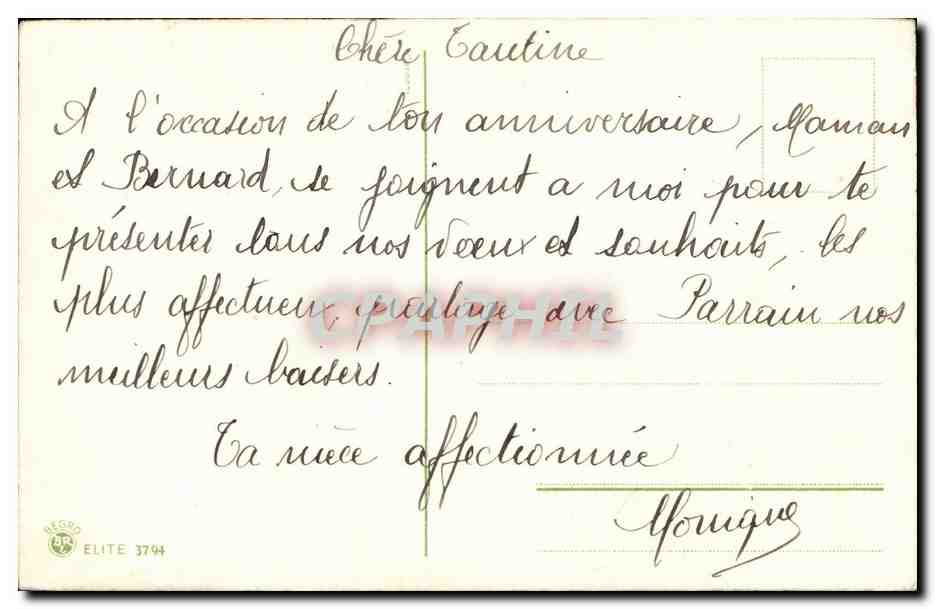 Chère Tantine
A l'occasion de ton anniversaire, Maman
et Bernard, se joignent a moi pour te
présenter tous nos voeux et souhaits, les
plus affectueux, partage avec Parrain nos
meilleurs baisers.
Ta nièce affectionnée
Monique
CPAPHIL
BEGRO
ELITE 3794